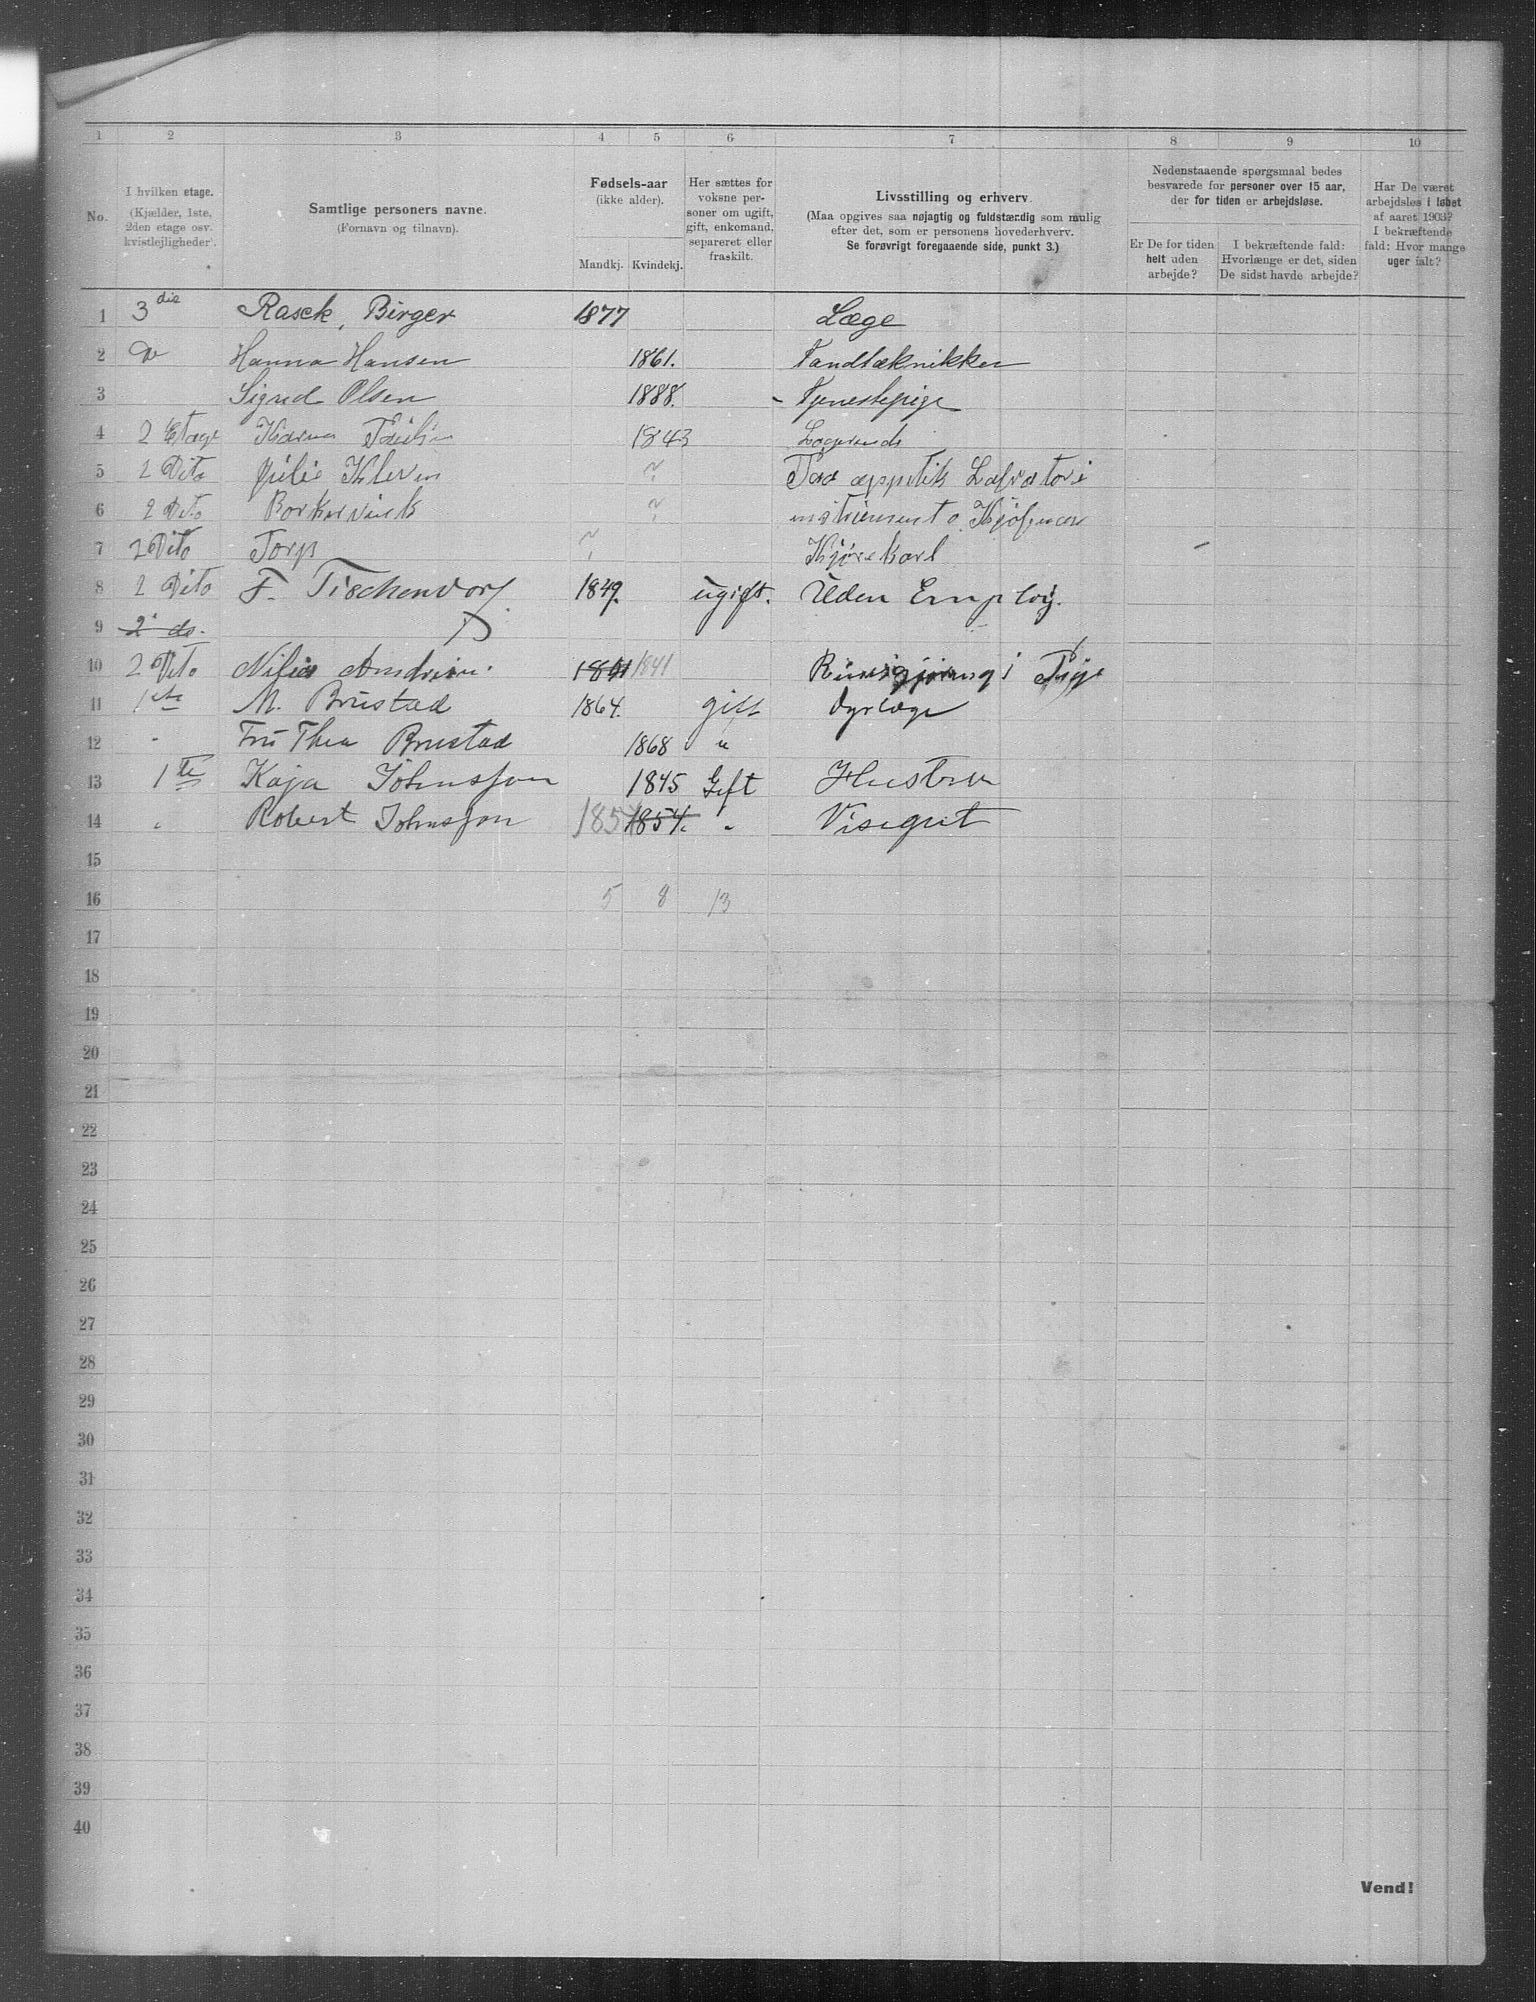 1 2 3 4 5 6 7 8 9 10
No.
I hvilken etage.
(Kjælder, 1ste,
2den etage osv.
kvistlejligheder).
Samtlige personers navne.
(Fornavn og tilnavn).
Fødsels-aar
(ikke alder).
Mandkj. Kvindekj.
Her sættes for
voksne per-
soner om ugift,
gift, enkemand,
separeret eller
fraskilt.
Livsstilling og erhverv.
(Maa opgives saa nøjagtig og fuldstændig som mulig
efter det, som er personens hovederhverv.
Se forøvrigt foregaaende side, punkt 3.)
Nedenstaaende spørgsmaal bedes
besvarede for personer over 15 aar,
der for tiden er arbejdsløse.
Er De for tiden
helt uden
arbejde?
I bekræftende fald:
Hvorlænge er det, siden
De sidst havde arbejde?
Har De været
arbejdsløs i løbet
af aaret 1903?
I bekræftende
fald: Hvor mange
uger ialt?
1 3die Rasck, Birger 1877 Læge
2 Do Hanna Hansen 1861. Tandtæknikker
3 Sigrid Olsen 1888. - Tjenestepige
4 2 Etage 1843
5 2 Dito Julie ~
6 2 Dito ~ instrument
7 2 Dito Torp ~ Kjørekarl -
8 2 Dito F. Tischendorf 1849. ugift. Uden Emploi.
9 2 do.
10 2 Dito 1841 Rengjøring i
11 1ste M. Brustad 1864. gift Dyrlæge
12 " Fru Thea Brustad 1868 "
13 1te Kaja Johnssen 1845 Gift Hustru
14 " Robert Johnssen 1854 1854. " Visegut
15
16 5 8 13
17
18
19
20
21
22
23
24
25
26
27
28
29
30
31
32
33
34
35
36
37
38
39
40
Vend!